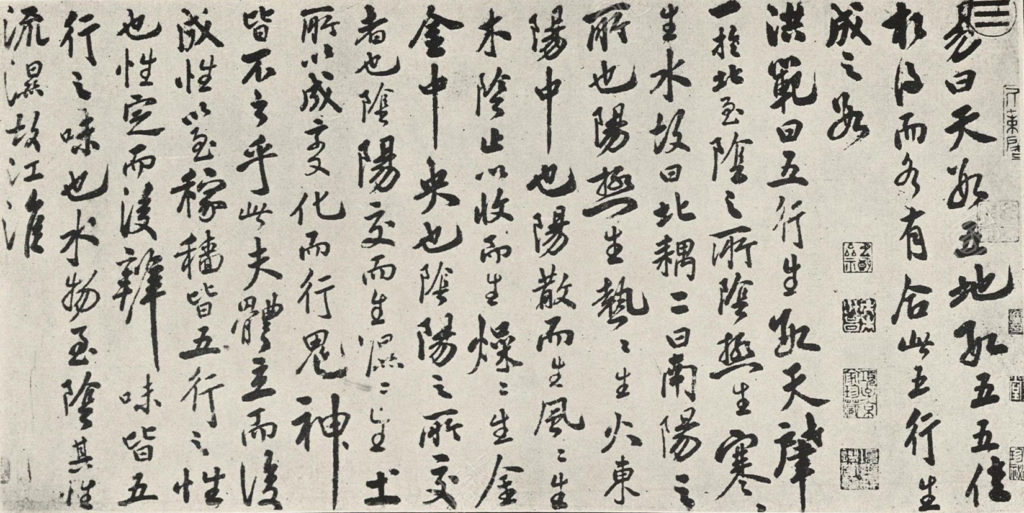 易曰天數五地數五五位
相得而各有合此五行生
成之數
洪範曰五行生數天肇
一於北至陰之所陰極生寒〻
生水故曰北耦二曰南陽之
所也陽極生熱〻生火東
陽中也陽散而生風〻生
木陰止以收而生燥〻生金
金中央也陰陽之所交
者也陰陽交而生濕〻生土
所以成變化而行鬼神
皆不乎此夫體立而後
成性以至稼穡皆五行之性
也性定而後辨味皆五
行之味也水物至陰其性
流濕故江淮